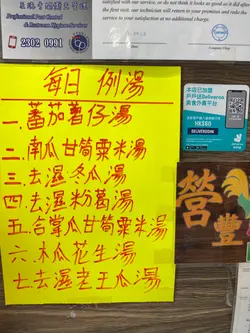 Professional Pest Control
& Restroom Hygiene Services
2302 0991
satisfied with our service, or do not think it looks as good as it did after
the first visit, our technician will return to your premises and redo the
service to your satisfaction at no additional charge.
每日 例湯
一.蕃茄薯仔湯
二.南瓜甘筍粟米湯
三.去濕冬瓜湯
四.去濕粉葛湯
五.合掌瓜甘筍粟米湯
六.木瓜花生湯
七.去濕老王瓜湯
本店已加盟
戶戶送Deliveroo
美食外賣平台
HK$60
DELIVERDIN
營
豐